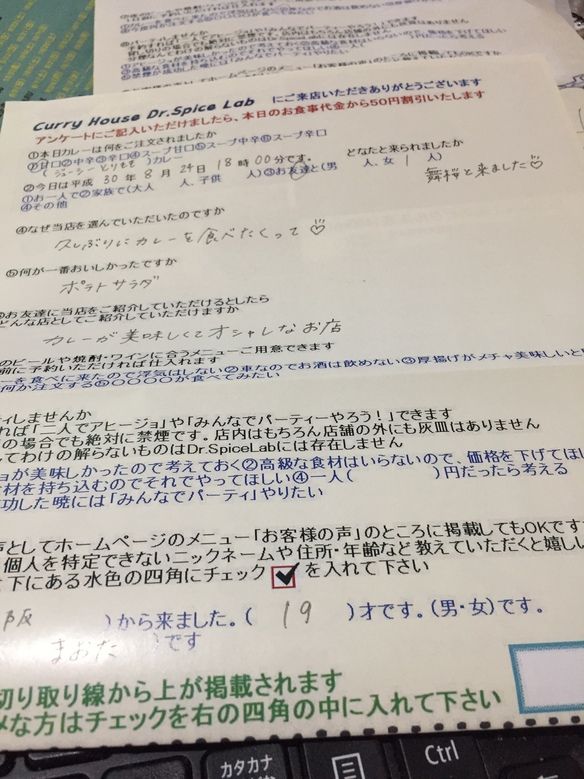 Curry House Dr.Spice Lab にご来店いただきありがとうございます
アンケートにご記入いただけましたら、本日のお食事代金から50円割引いたします
①本日カレーは何をご注文されましたか
①甘口②中辛③辛口④スープ甘口⑤スープ中辛⑥スープ辛口
(ジューシーとりもも)カレー
②今日は平成 30年 8月 24日 18時 00分です。 どなたと来られましたか
①お一人で②家族で(大人 人、子供 人)③お友達と(男 人、女 1 人)
④その他 舞桜と来ました♡
④なぜ当店を選んでいただいたのですか
久しぶりにカレーを食べたくって♡
⑤何が一番おいしかったですか
ポテトサラダ
お友達に当店をご紹介していただけるとしたら
どんな店としてご紹介していただけますか
カレーが美味しくてオシャレなお店
のビールや焼酎・ワインに合うメニューご用意できます
前に予約いただければ仕入れます
ーを食べに来たので浮気はしない②車なのでお酒は飲めない③厚揚げがメチャ美味しいと
何か注文する⑤〇〇〇〇が食べてみたい
ィしませんか
れば「二人でアヒージョ」や「みんなでパーティーやろう！」できます
の場合でも絶対に禁煙です。店内はもちろん店舗の外にも灰皿はありません
してわけの解らないものはDr.SpiceLabには存在しません
ョが美味しかったので考えておく②高級な食材はいらないので、価格を下げてほし
材を持ち込むのでそれでやってほしい④一人( )円だったら考える
成功した暁には「みんなでパーティ」やりたい
声としてホームページのメニュー「お客様の声」のところに掲載してもOKです
個人を特定できないニックネームや住所・年齢など教えていただくと嬉しい
下にある水色の四角にチェック ✓ を入れて下さい
阪 )から来ました。( 19 )才です。(男・女)です。
まおた )です
切り取り線から上が掲載されます
メな方はチェックを右の四角の中に入れて下さい
カタカナ
Ctrl